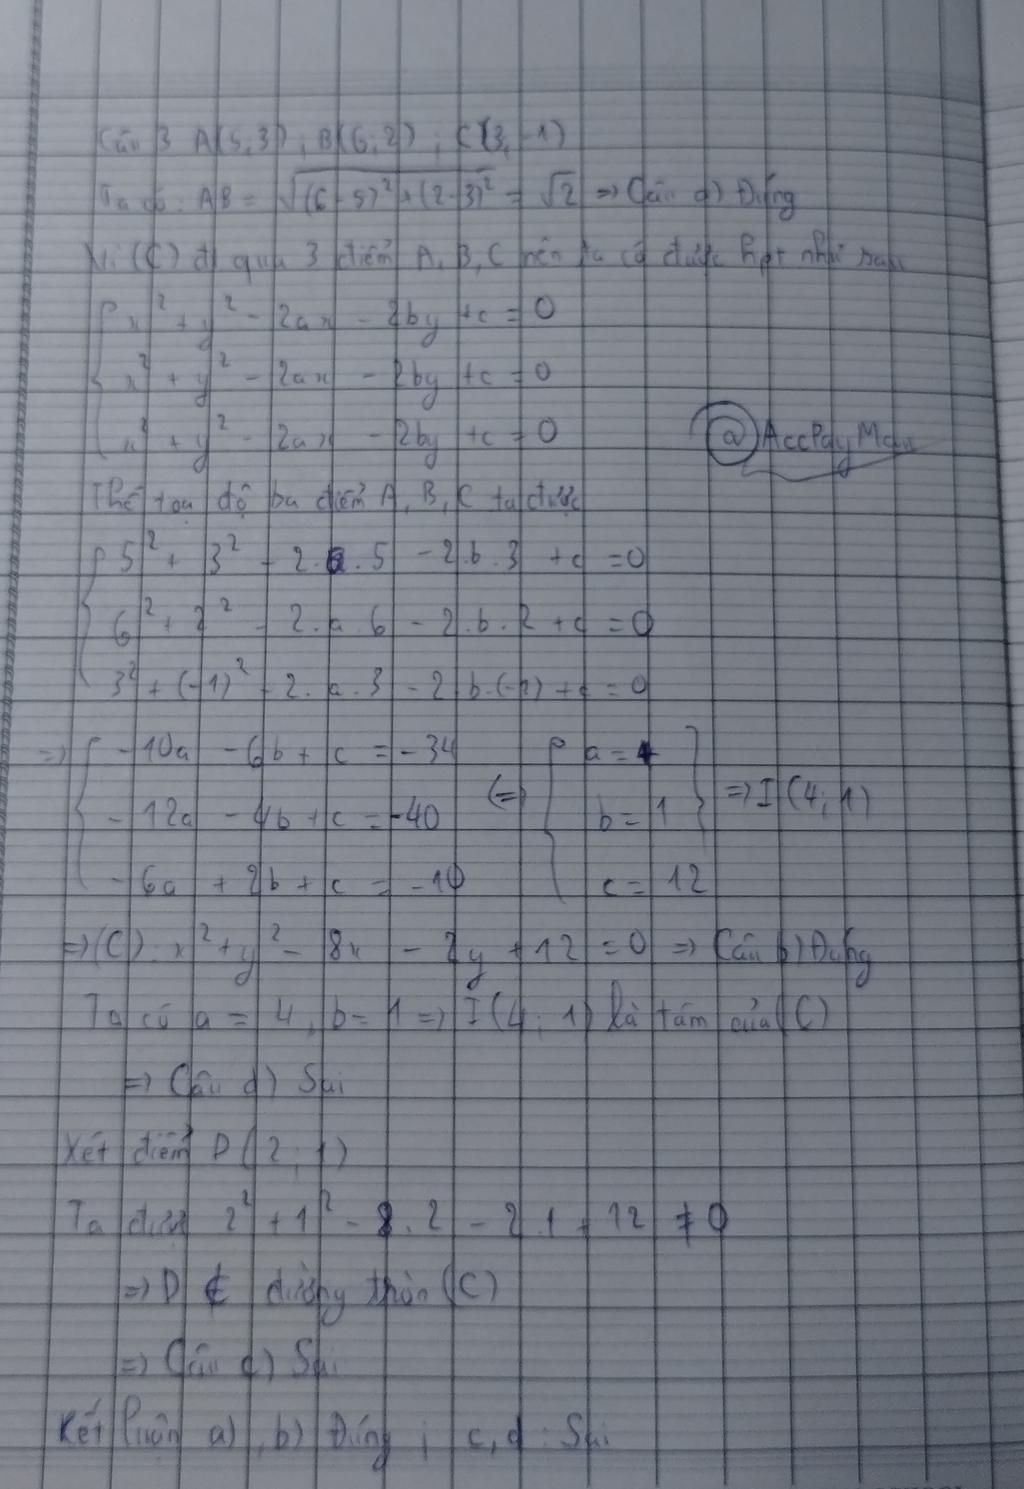 Câu 3 A(5;3); B(6;2); C(3;-1)
Ta có: AB = √((6-5)² + (2-3)²) = √2 => Câu a) Đúng
Vì (C) đi qua 3 điểm A, B, C nên ta có được hpt như sau
x² + y² - 2ax - 2by + c = 0
x² + y² - 2ax - 2by + c = 0
x² + y² - 2ax - 2by + c = 0
@AccPayMau
Thế tọa độ ba điểm A, B, C ta được
5² + 3² - 2.a.5 - 2.b.3 + c = 0
6² + 2² - 2.a.6 - 2.b.2 + c = 0
3² + (-1)² - 2.a.3 - 2.b.(-1) + c = 0
=> { -10a - 6b + c = -34 { a = 4
- 12a - 4b + c = -40 <=> b = 1 } => I(4;1)
- 6a + 2b + c = -10 c = 12
=> (C): x² + y² - 8x - 2y + 12 = 0 => Câu b) Đúng
Ta có a = 4, b = 1 => I(4;1) là tâm của (C)
=> Câu d) Sai
Xét điểm D(2;1)
Ta được 2² + 1² - 8.2 - 2.1 + 12 ≠ 0
=> D ∉ đường tròn (C)
=> Câu c) Sai
Kết luận a), b) Đúng; c, d: Sai